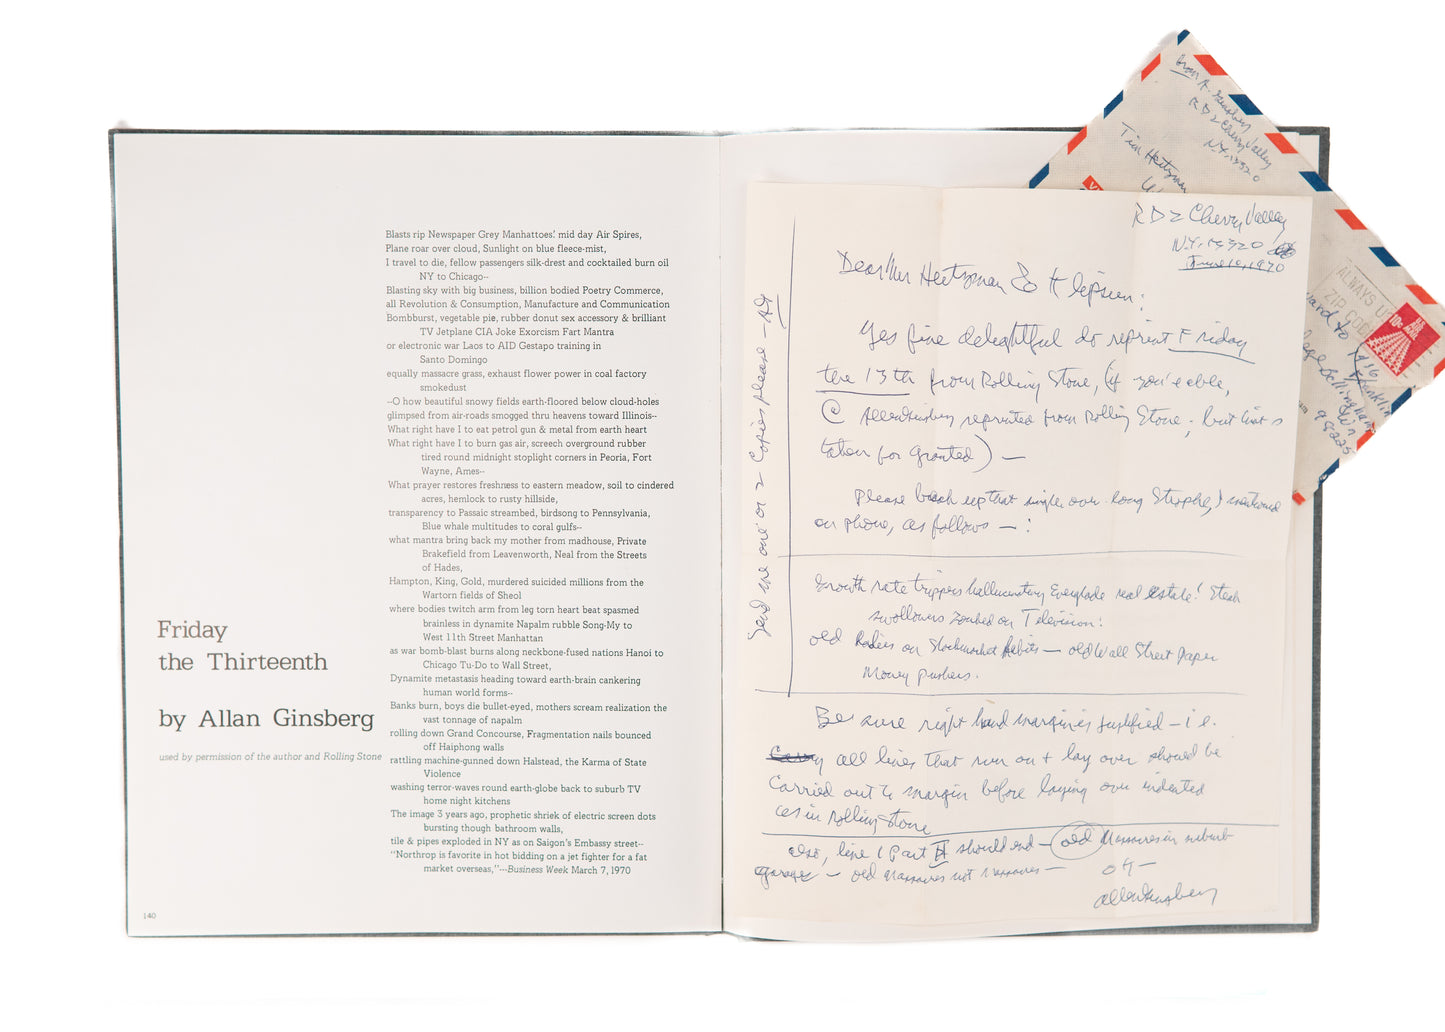 Friday
the Thirteenth
by Allan Ginsberg
used by permission of the author and Rolling Stone
Blasts rip Newspaper Grey Mannattoes' mid day Air Spires,
Plane roar over cloud, Sunlight on blue fleece-mist,
I travel to die, fellow passengers silk-drest and cocktailed burn oil
NY to Chicago--
Blasting sky with big business, billion bodied Poetry Commerce,
all Revolution & Consumption, Manufacture and Communication
Bombburst, vegetable pie, rubber donut sex accessory & brilliant
TV Jetplane CIA Joke Exorcism Fart Mantra
or electronic war Laos to AID Gestapo training in
Santo Domingo
equally massacre grass, exhaust flower power in coal factory
smokedust
--O how beautiful snowy fields earth-floored below cloud-holes
glimpsed from air-roads smogged thru heavens toward Illinois--
What right have I to eat petrol gun & metal from earth heart
What right have I to burn gas air, screech overground rubber
tired round midnight stoplight corners in Peoria, Fort
Wayne, Ames--
What prayer restores freshness to eastern meadow, soil to cindered
acres, hemlock to rusty hillside,
transparency to Passaic streambed, birdsong to Pennsylvania,
Blue whale multitudes to coral gulfs--
what mantra bring back my mother from madhouse, Private
Brakefield from Leavenworth, Neal from the Streets
of Hades,
Hampton, King, Gold, murdered suicided millions from the
Wartorn fields of Sheol
where bodies twitch arm from leg torn heart beat spasmed
brainless in dynamite Napalm rubble Song-My to
West 11th Street Manhattan
as war bomb-blast burns along neckbone-fused nations Hanoi to
Chicago Tu-Do to Wall Street,
Dynamite metastasis heading toward earth-brain cankering
human world forms--
Banks burn, boys die bullet-eyed, mothers scream realization the
vast tonnage of napalm
rolling down Grand Concourse, Fragmentation nails bounced
off Haiphong walls
rattling machine-gunned down Halstead, the Karma of State
Violence
washing terror-waves round earth-globe back to suburb TV
home night kitchens
The image 3 years ago, prophetic shriek of electric screen dots
bursting though bathroom walls,
tile & pipes exploded in NY as on Saigon's Embassy street--
"Northrop is favorite in hot bidding on a jet fighter for a fat
market overseas,"--Business Week March 7, 1970
140
RD2 Cherry Valley
N.Y. 13320
June 10, 1970
Dear Mr Heitzman & Klipsun:
Yes fine delightful do reprint Friday
the 13th from Rolling Stone, (if you're able,
© Allen Ginsberg reprinted from Rolling Stone; but that's
taken for granted) —
Please break up that single over long Strophe, I mentioned
on phone, as follows —:
Growth rate trippers hallucinating Everglade real estate! Steak
swallowers zonked on Television!
old Ladies on Stockmarket habits — old Wall Street paper
Money pushers.
Be sure right hand margin is justified — i.e.
all lines that run on & lay over should be
carried out to margin before laying over indented
as in Rolling Stone
also, line 1 part II should end — old Massacres in suburb
garages — old Massacres not Massacres —
OK —
Allen Ginsberg
Send me one or 2 Copies please — AG
from A. Ginsberg
RD2 Cherry Valley
N.Y. 13320
Tim Heitzman
ALWAYS U
ZIP COD
10¢
516
Franklin
Bellingham
98225